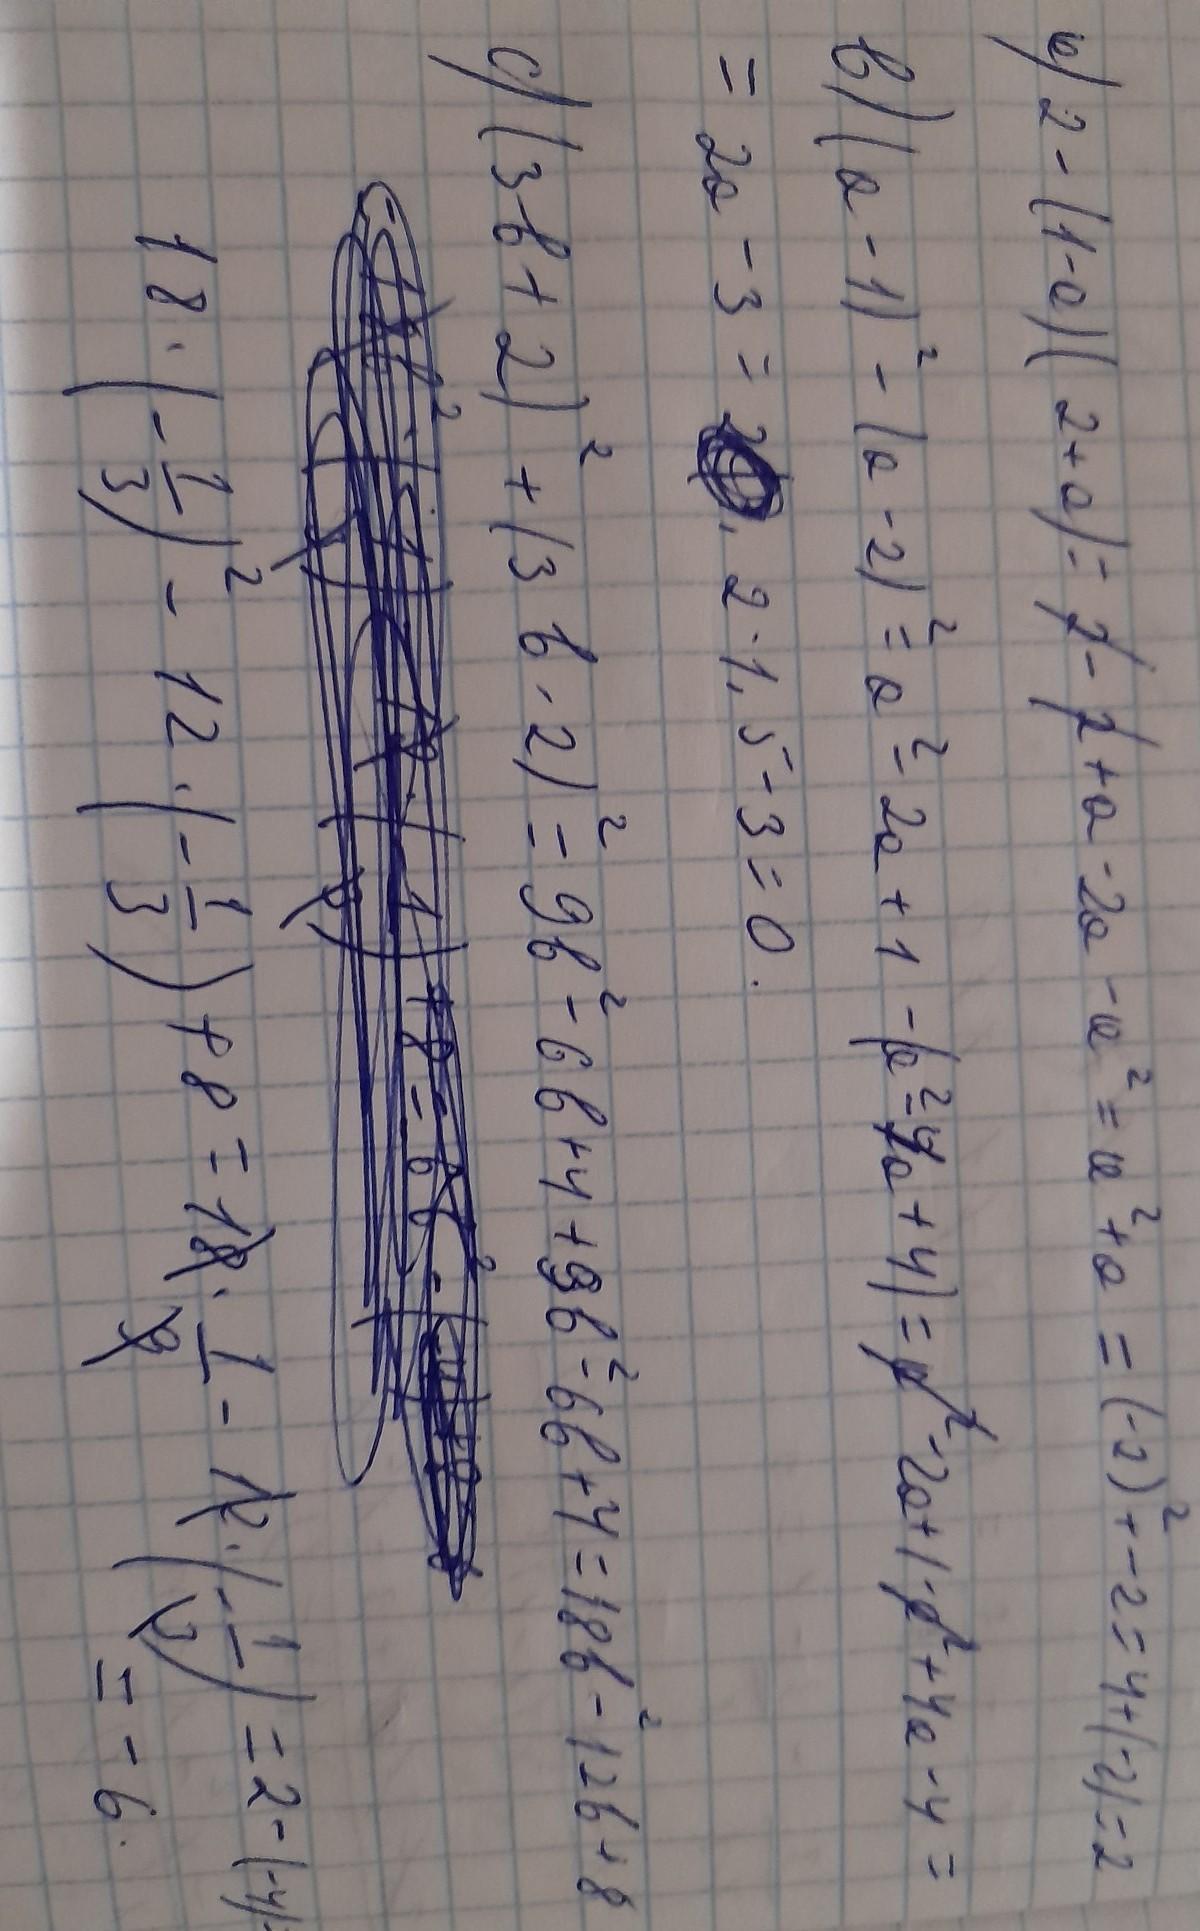 a) 2-(1-a)(2+a)=2-2+a-2a-a²=a²+a=(-2)²+-2=4+(-2)=2
b) (a-1)²-(a-2)²=a²-2a+1-(a²-4a+4)=a²-2a+1-a²+4a-4=
=2a-3= 2·1,5-3=0.
c) (3b+2)²+(3b-2)²=9b²-6b+4+9b²-6b+4=18b²-12b+8
18·(-1/3)²-12·(-1/3)+8=18·1/9-12·(-1/3)=2-(-4)=
=-6.